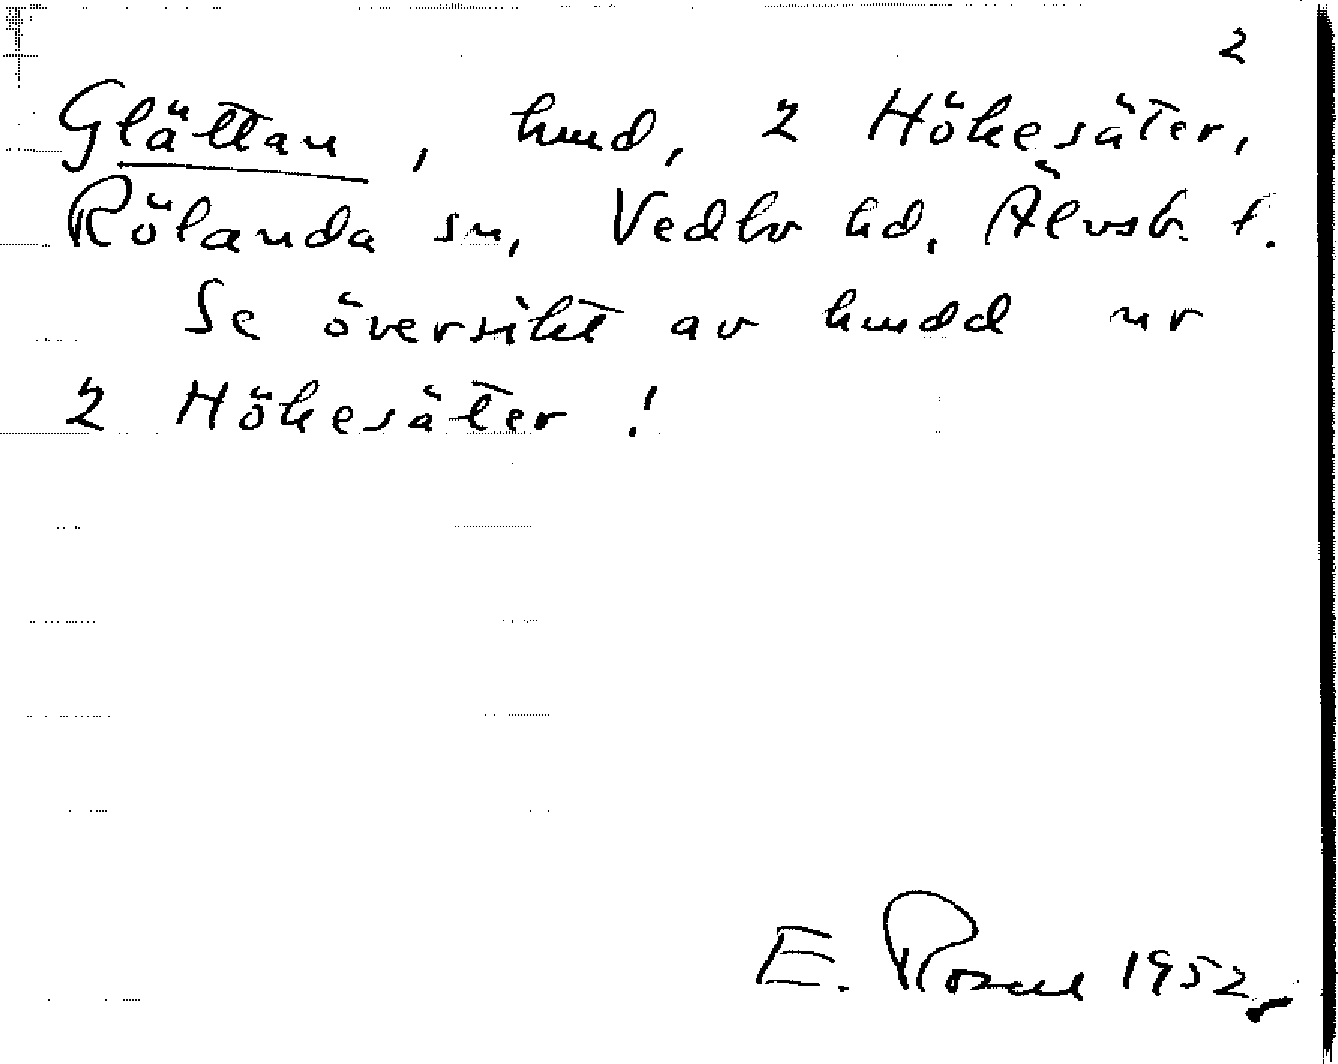 2
Glättan, hmd, 2 Hökesäter,
Rölanda sn, Vedbo hd, Älvsb. l.
Se översikt av hmdd nr
2 Hökesäter!
E. Rosell 1952